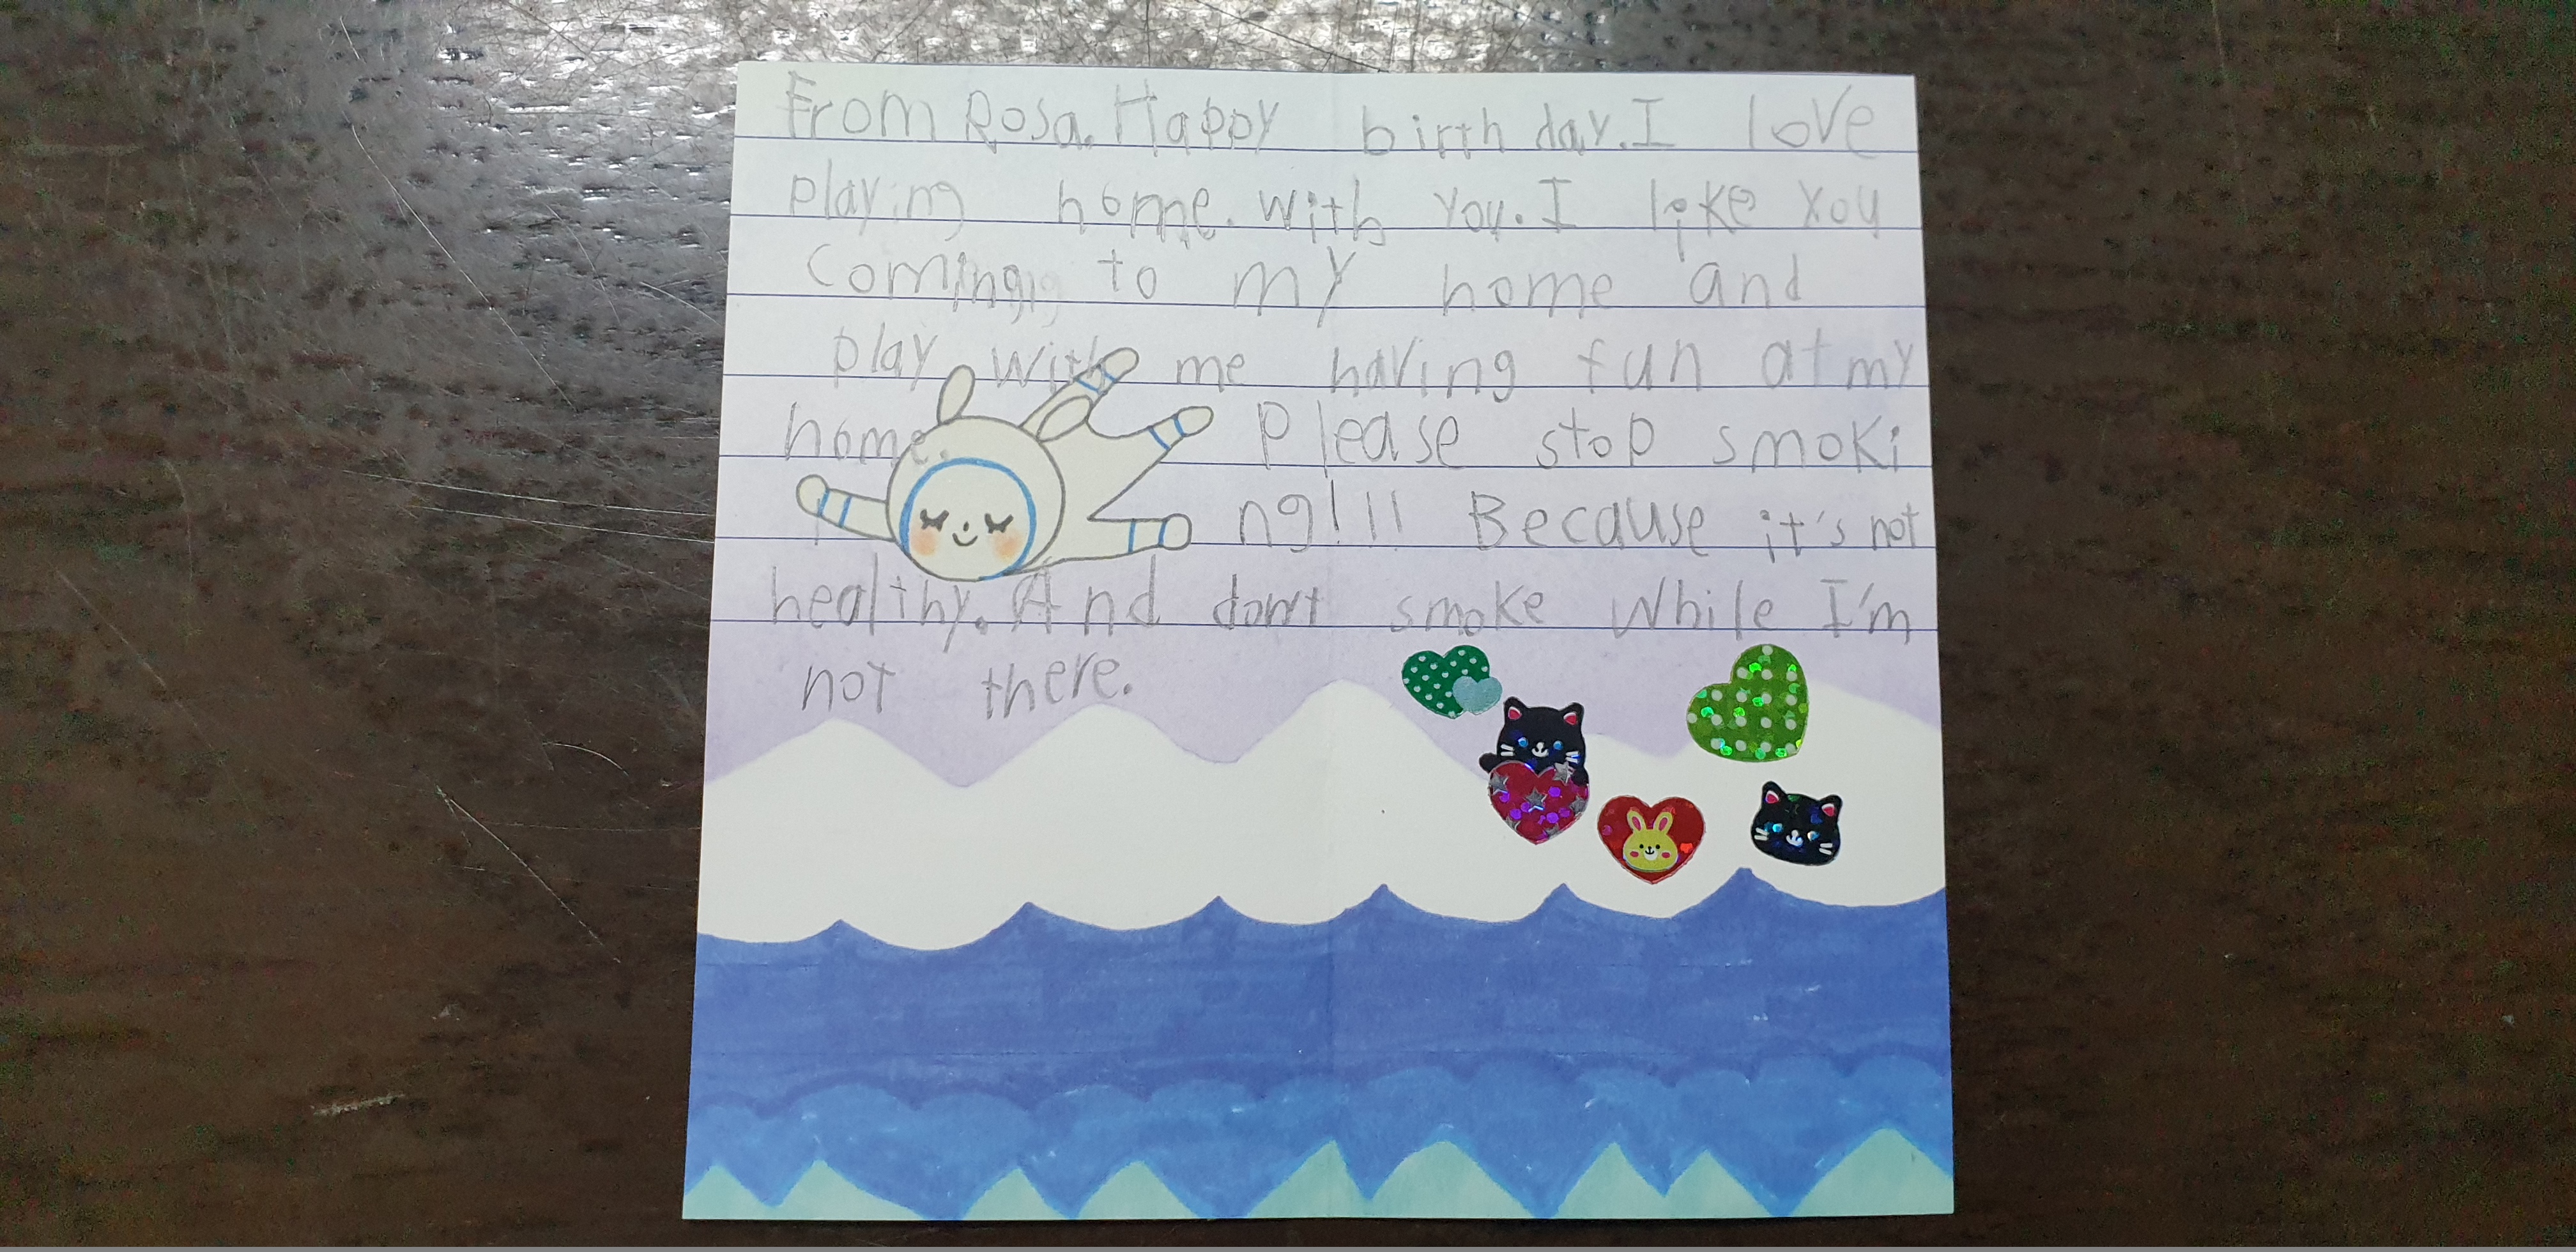 From Rosa. Happy birth day. I love
playing home. with you. I like you
coming to my home and
play with me having fun at my
home. Please stop smoki
ng!!! Because it's not
healthy. And don't smoke while I'm
not there.